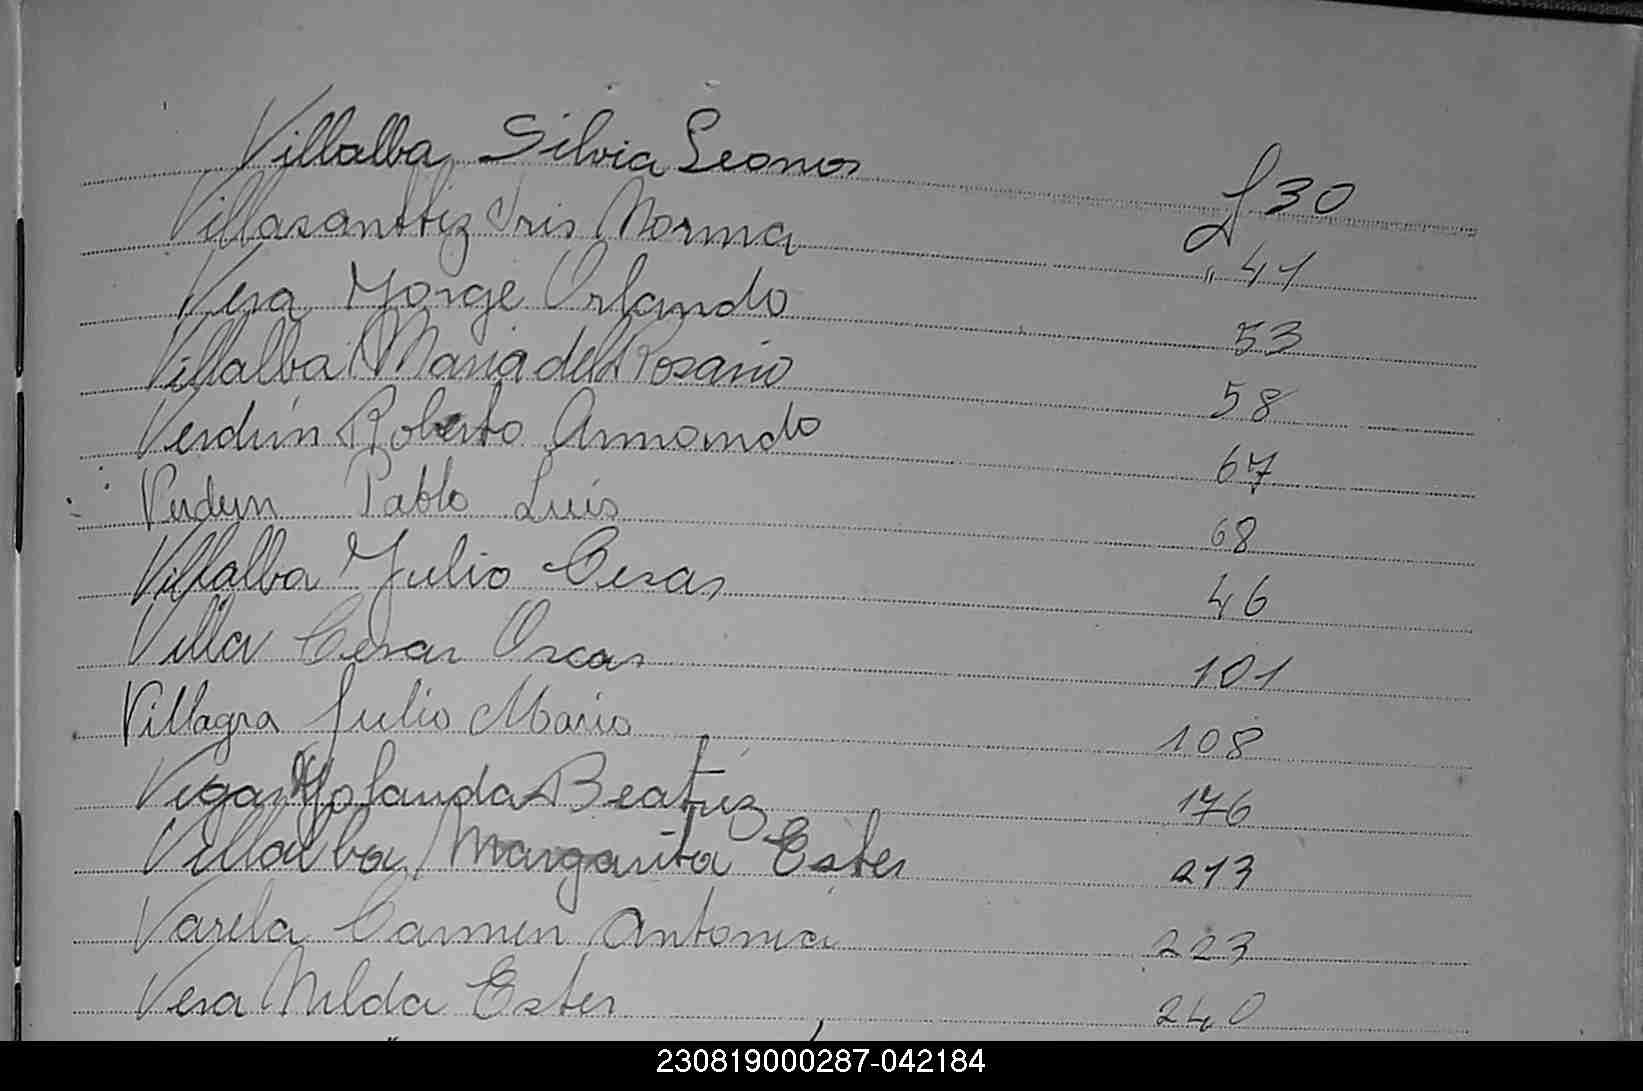 Villalba Silvia Leonor f 30
Villasanttiz Iris Norma " 41
Vera Jorge Orlando 53
Villalba Maria del Rosario 58
Verdún Roberto Armando 67
Verdun Pablo Luis 68
Villalba Julio Cesar 46
Villa Cesar Oscar 101
Villagra Julio Mario 108
Vega Yolanda Beatriz 176
Villalba Margarita Ester 213
Varela Carmen Antonia 223
Vera Nilda Ester 240
230819000287-042184